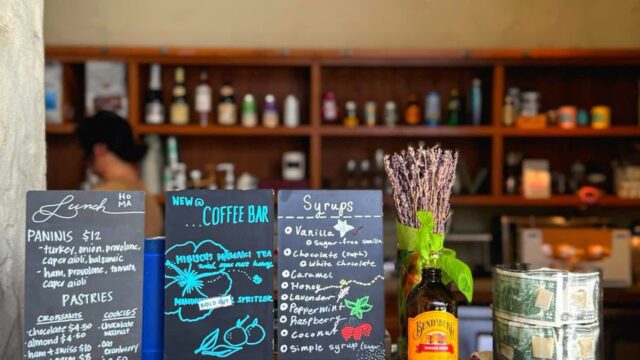 Lunch
HOMA
PANINIS $12
- turkey, onion, provolone,
caper aioli, balsamic
- ham, provolone, tomato,
caper aioli
PASTRIES
CROISSANTS
chocolate $4.50
almond $4.50
ham + swiss $10
COOKIES
chocolate
walnut
oat
cranberry
NEW @
...COFFEE BAR
HIBISCUS MAMAKI TEA
SOLD OUT
SPRITZER
Syrups
Vanilla
Sugar-free vanilla
Chocolate
White chocolate
Caramel
Honey
Lavender
Peppermint
Raspberry
Coconut
Simple syrup (sugar)
BUNDABERG
GINGER BEER